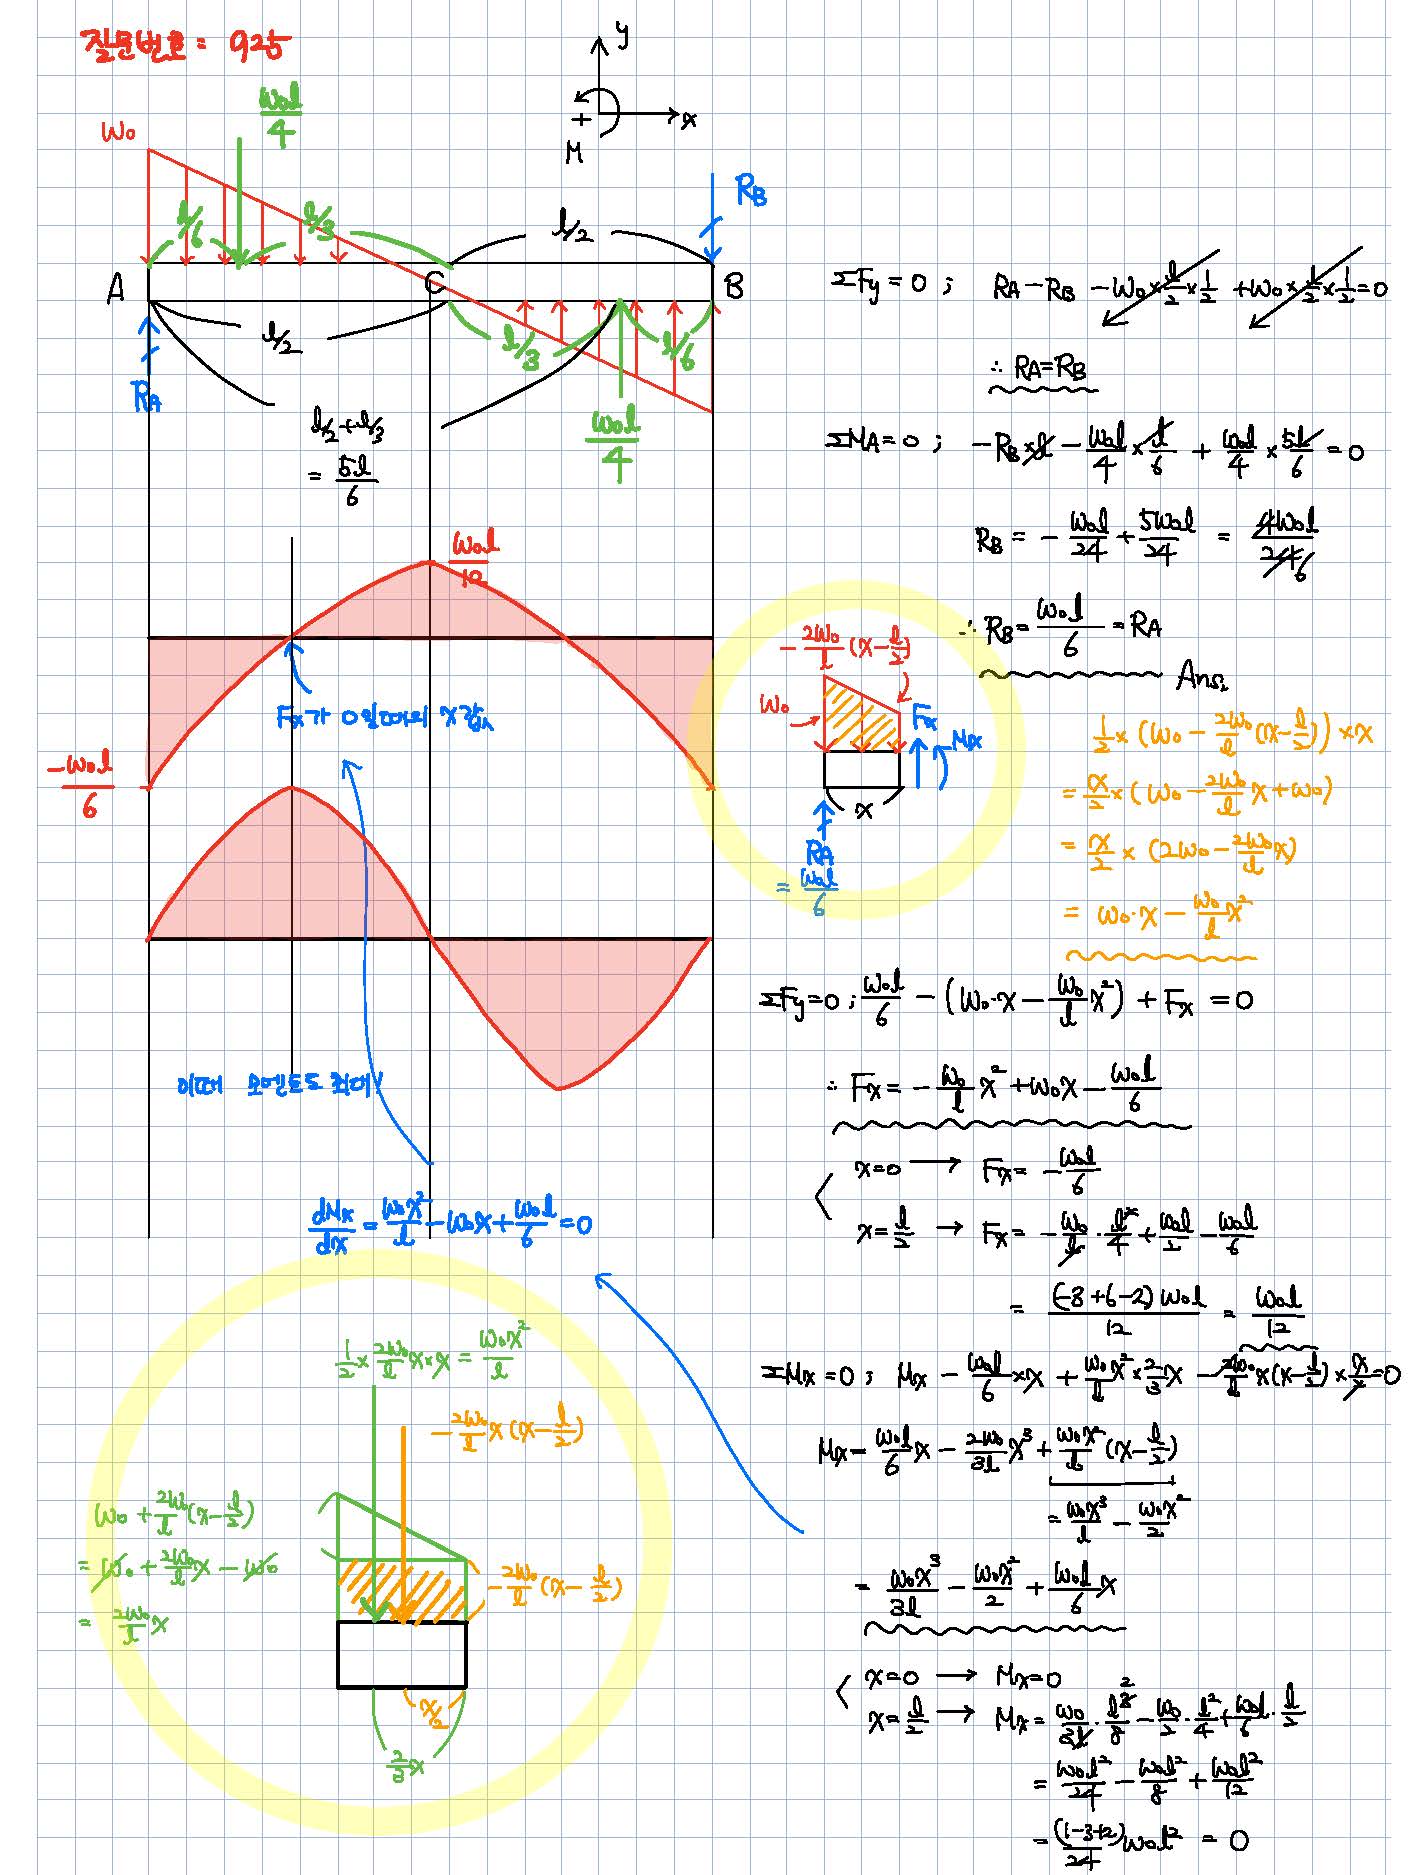 질문번호 = 925
y
x
+
M
W₀
W₀l/4
l/6
l/3
l/2
R_B
A
C
B
l/2
l/3
l/6
R_A
W₀l/4
l/2+l/3
= 5l/6
ΣFy=0 ; R_A-R_B-W₀×l/2×1/2+W₀×l/2×1/2=0
∴ R_A=R_B
ΣM_A=0 ; -R_B×l-W₀l/4×l/6+W₀l/4×5l/6=0
R_B = -W₀l/24+5W₀l/24 = 4W₀l/24 6
∴ R_B=W₀l/6=R_A
Ans.
W₀l/12
Fx가 0일때의 X값
-W₀l/6
-2W₀/l(x-l/2)
W₀
Fx
Mx
x
R_A
= W₀l/6
1/2×(W₀-2W₀/l(x-l/2))×x
= x/2×(W₀-2W₀/l x+W₀)
= x/2×(2W₀-2W₀/l x)
= W₀·x-W₀/l x²
ΣFy=0 ; W₀l/6-(W₀·x-W₀/l x²)+Fx=0
∴ Fx=-W₀/l x²+W₀x-W₀l/6
x=0 → Fx=-W₀l/6
x=l/2 → Fx=-W₀/l·l²/4+W₀l/2-W₀l/6
= (-3+6-2)W₀l/12 = W₀l/12
이때 모멘트도 최대!
dMx/dx=W₀x²/l-W₀x+W₀l/6=0
ΣMx=0 ; Mx-W₀l/6×x+W₀x²/l×2/3x-2W₀/l x(x-l/2)×x/2=0
Mx=W₀l/6x-2W₀/3l x³+W₀x²/l(x-l/2)
=W₀x³/l-W₀x²/2
= W₀x³/3l-W₀x²/2+W₀l/6x
x=0 → Mx=0
x=l/2 → Mx=W₀/3l·l³/8-W₀/2·l²/4+W₀l/6·l/2
2
= W₀l²/24-W₀l²/8+W₀l²/12
= (1-3+2)/24 W₀l² = 0
1/2×2W₀/l x×x=W₀x²/l
-2W₀/l x(x-l/2)
W₀+2W₀/l(x-l/2)
= W₀+2W₀/l x-W₀
= 2W₀/l x
-2W₀/l(x-l/2)
x/2
2/3x